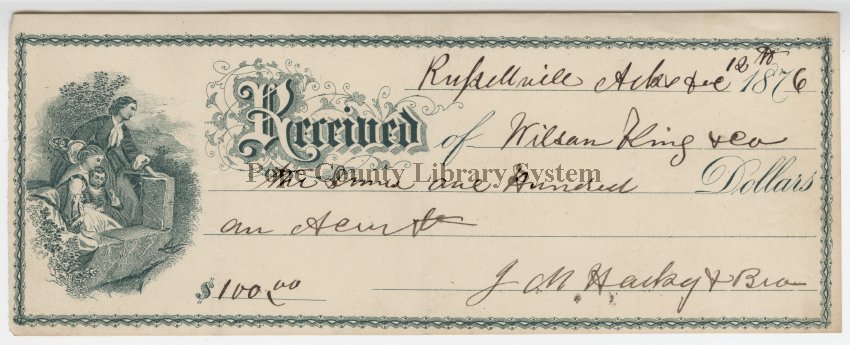 Russellville Arks Dec 12th 1876
Received of Wilson King & Co
the sum of one Hundred Dollars
Pope County Library System
on Acount
$100.00 J M Harkey & Bro